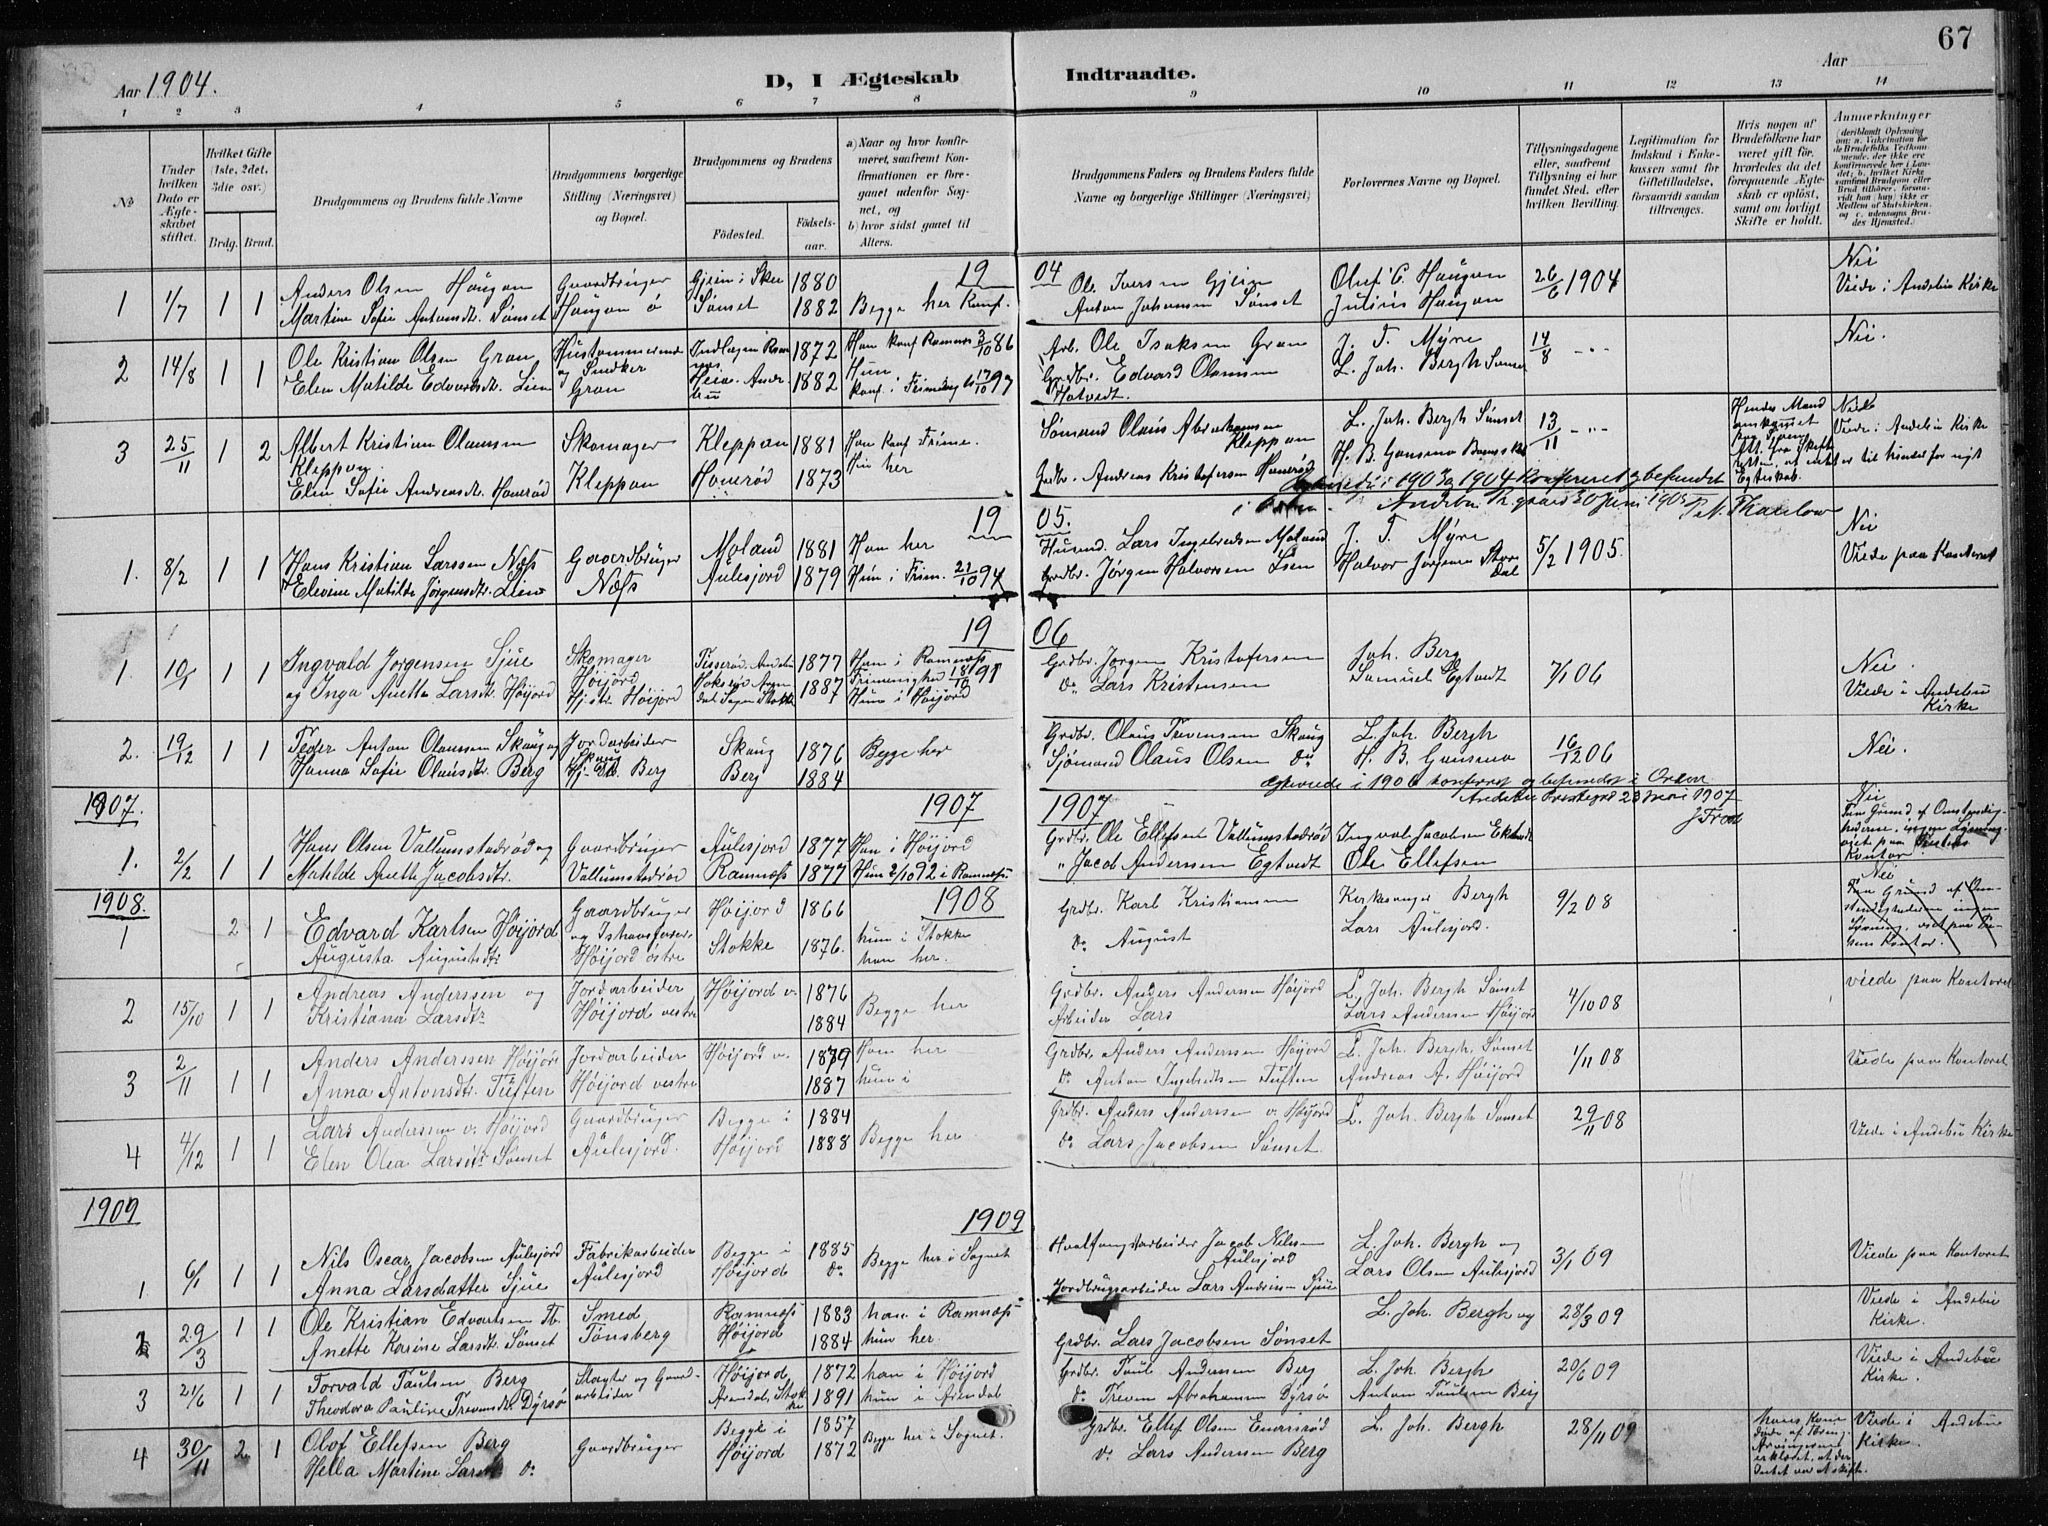 67
Aar 1904.
D, I Ægteskab Indtraadte.
Aar
1 2 3 4 5 6 7 8 9 10 11 12 13 14
No
Under hvilken Dato er Ægteskabet stiftet.
Hvilket Gifte (1ste, 2det, 3die osv.)
Brdg. Brud.
Brudgommens og Brudens fulde Navne
Brudgommens borgerlige Stilling (Næringsvei) og Bopæl.
Brudgommens og Brudens
Fødested. Fødselsaar.
a) Naar og hvor konfirmeret, saafremt Konfirmationen er foregaaet udenfor Sognet, og
b) hvor sidst gaaet til Alters.
Brudgommens Faders og Brudens Faders fulde Navne og borgerlige Stillinger (Næringsvei)
Forlovernes Navne og Bopæl.
Tillysningsdagene eller, saafremt Tillysning ei har fundet Sted, efter hvilken Bevilling.
Legitimation for Indskud i Enkekassen samt for Giftetilladelse, forsaavidt saadan tiltrænges.
Hvis nogen af Brudefolkene har været gift før, hvorledes da det foregaaende Ægteskab er opløst, samt om lovligt Skifte er holdt.
Anmerkninger
(deriblandt Oplysning om: a. Vakcination for de Brudefolks Vedkommende, der ikke er konfirmerede her i Landet; b. hvilket Kirkesamfund Brudgom eller Brud tilhører, forsaavidt han (hun) ikke er Medlem af Statskirken, og c. udensogns Brudes Hjemsted.)
1904
1 1/7 1 1 Anders Olsen Haugan Gaardbruger Gjein i Skee 1880 Ole Iversen Gjein Oluf C. Haugan 26/6 1904 Nei
Martine Sofie Antonsdtr. Sønset Haugan ø Sønset 1882 Begge her konf. Anton Johansen Sønset Julius Haugan Viede i Andebu Kirke
2 14/8 1 1 Ole Kristian Olsen Gran Hustømmermand og Snedker 1872 Han konf Ramnæs 3/10 86 Arb. Ole Isaksen Gran J. T. Myre 14/8 -"- Nei.
Elen Matilde Edvardsdtr. Lien Gran 1882 Hun konf. i Frimenig 17/10 97 Grdbr. Edvard Olausen Hotvedt. L. Joh. Bergh Sønset
3 25/11 1 2 Albert Kristian Olaussen Kleppan. Skomager Kleppan 1881 Han konf Frime. Sømand Olaus Abrahamsen Kleppan L. Joh. Bergh Sønset 13/11 -"- Hendes Mand Nei
Elen Sofie Andreasdtr. Honerød Kleppan Honerød 1873 Hun her Grdbr. Andreas Kristofersen Honerød Viede i Andebu Kirke
i 1903 og 1904 konfereret og befundet i Orden. Andebu Pr.gaard 30 Juni 1905
1905.
1. 8/2 1 1 Hans Kristian Larssen Næss Gaardbruger Moland 1881 Han her Husmd. Lars Ingebretsen Moland J. T. Myre 5/2 1905. Nei
Elevine Matilde Jørgensdtr. Lien Næss Aulesjord 1879 Hun i Frim. 21/10 94 Grdbr. Jørgen Halvorsen Lien Halvor Jørgensen Stordal Viede paa Kontoret
1906
1. 10/1 1 1 Ingvald Jørgensen Sjue Skomager Høijord 1877 Han i Ramnæs Frimenighed 18/10 91 Grdbr. Jørgen Kristofersen Joh. Berg 7/1 06 Nei.
og Inga Anette Larsdtr. Høijord Høijord 1887 Hun i Høijord Do. Lars Kristensen Samuel Egtvedt Viede i Andebu Kirke
2. 19/12 1 1 Peder Anton Olaussen Skaug og Jordarbeider Skaug 1876 Begge her Grdbr. Olaus Trevensen Skaug L. Joh. Bergh 16/12 06 Nei.
Hanna Sofie Olausdtr. Berg Berg 1884 Sjømand Olaus Olsen Do H. B. Gansmo
Egteviede i 1906 konfereret og befundet i Orden. Andebu Prestegrd 23 Mai 1907
1907. 1907 1907
1. 2/2 1 1 Hans Olsen Vallumstadrød og Gaardbruger Aulesjord 1877 Han i Høijord Grdbr. Ole Ellefsen Vallumstadrød Ingvald Jacobsen Nei
Matilde Anette Jacobsdtr. Vallumstadrød Ramnæss 1877 Hun 2/10 92 i Ramnæss " Jacob Anderssen Egtvedt Ole Ellefsen Kontor.
1908. 1908
1 2 1 Edvard Karlsen Høijord Gaardbruger Høijord 1866 Grdbr. Karl Kristiansen Kirkesanger Bergh 9/2 08 Nei
Augusta Augustsdtr. Høijord østre Stokke 1876. hun i Stokke han her. Do. August Lars Aulesjord.
2 15/10 1 1 Andreas Anderssen og Jordarbeider Høijord v. 1876 Begge her Grdbr. Anders Andersen Høijord L. Joh. Bergh Sønset 4/10 08 viede paa Kontoret
Kristiana Larsdtr Høijord vestre 1884 Arbeider Lars Lars Andersen Høijord
3 2/11 1 1 Anders Anderssen Høijord Jordarbeider Høijord v. 1879 Ham her Grdbr. Anders Anderssen Høijord L. Joh. Bergh. Sønset 1/11 08 Viede paa Kontoret
Anna Antonsdtr. Tuften Høijord vestre 1887 hun i Do. Anton Ingebretsen Tuften Andreas A. Høijord
4 4/12 1 1 Lars Anderssen v. Høijord Gaardbruger Begge i 1884 Begge her Grdbr. Anders Andersen v. Høijord L. Joh. Bergh Sønset 29/11 08 Viede i Andebu Kirke
Elen Olea Larsdtr Sønset Aulesjord. Høijord 1888 Do. Lars Jacobsen Sønset.
1909 1909
1 6/1 1 1 Nils Oscar Jacobsen Aulesjord Fabrikarbeider Begge i 1885 Begge her i Sognet Hvalfangstarbeider Jacob Nilsen Aulesjord L. Joh. Bergh og 3/1 09 Viede paa Kontoret
Anna Larsdatter Sjue Aulesjord Høijord Do Jordbrugsarbeider Lars Andersen Sjue Lars Olsen Aulesjord
2 29/3 1 1 Ole Kristian Edvartsen Tb. Smed Ramnæss 1883 han i Ramnæss L. Joh. Bergh og 28/3 09 Viede i Andebu Kirke.
Anette Karine Larsdtr. Sønset Tønsberg Høijord 1884 hun her. Grdbr. Lars Jacobsen Sønset
3 21/6 1 1 Torvald Paulsen Berg Slagter og Gaardarbeider Høijord 1872 han i Høijord Grdbr. Paul Andersen Berg L. Joh. Bergh 20/6 09 Viede i Andebu Kirke.
Theodora Pauline Trevensdtr. Dyrsø Arendal, Stokke 1891 hun i Arendal Do. Treven Abrahamsen Dyrsø Anton Paulsen Berg
4 30/11 2 1 Olof Ellefsen Berg Gaardbruger Begge i 1857 Begge her i Sognet. Grdbr. Ellef Olsen L. Joh. Bergh 28/11 09 hans Kone døde Viede i Andebu Kirke.
Hella Martine Larsdtr Do. Høijord 1872 Do. Lars Andersen Berg